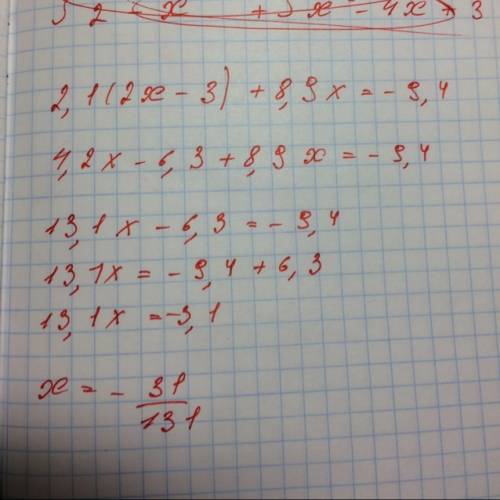 2,1(2x - 3) + 8,9x = - 9,4
4,2x - 6,3 + 8,9x = - 9,4
13,1x - 6,3 = - 9,4
13,1x = - 9,4 + 6,3
13,1x = -3,1
x = - 31/131